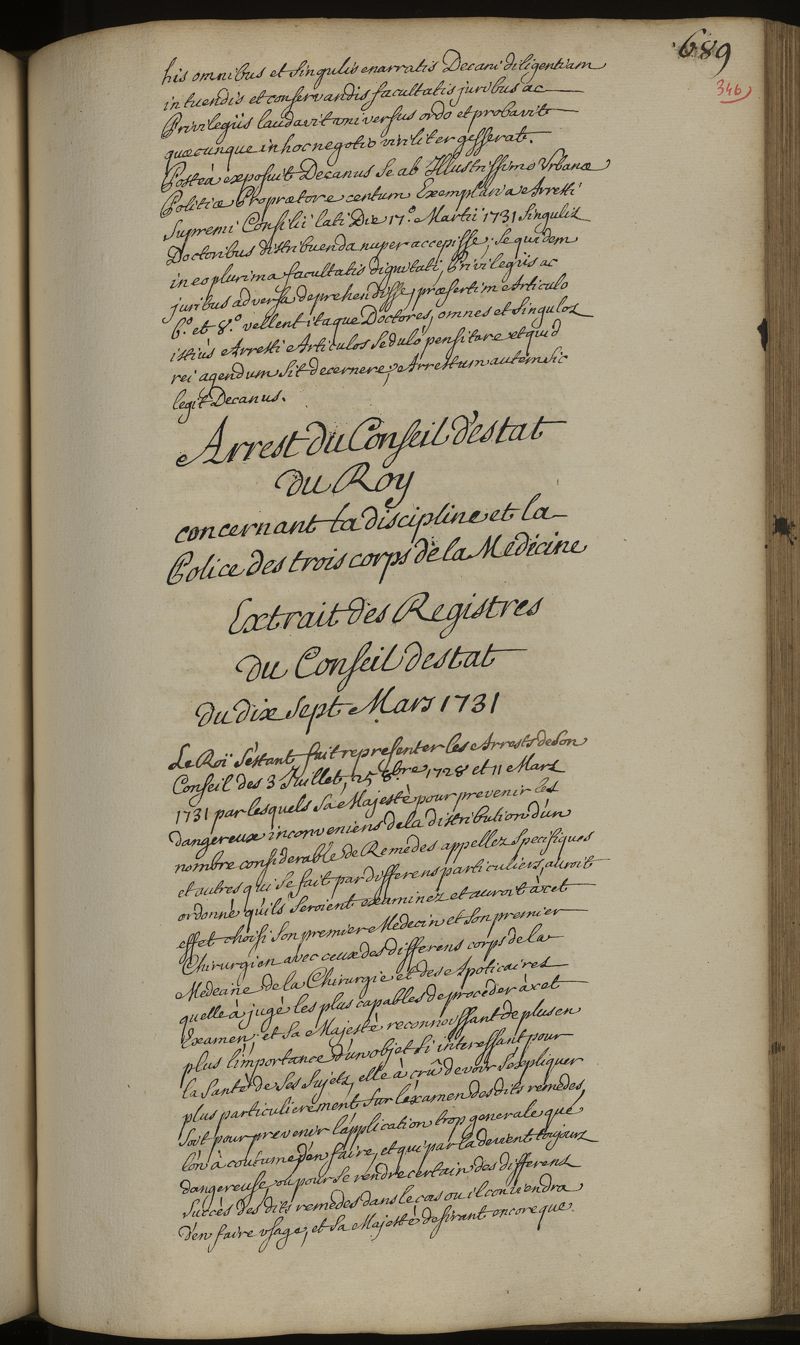 689
346
his omnibus et singulis enarratis Decani diligentiam
in tuendis et conservandis facultatis juribus ac
Privilegiis laudavit universus ordo et probavit
quæcunque in hoc negotio viriliter gesserat.
Posteà exposuit Decanus se ab Illustrissimo Urbanæ
Politiæ Proprætore centum Exemplaria Arresti
Supremi Consilii lati Die 17.° Martii 1731 Singulis
Doctoribus distribuenda nuper accepisse; se quidem
in eo plurima facultatis dignitati, Privilegiis ac
juribus adversa deprehendisse, præsertim Articulo
6.° et 8.° vellent itaque Doctores, omnes et singulos
istius Arresti Articulos seduló pensitare et quid
rei agendum sit decernere; Arrestum autem sic
legit Decanus.
Arrest du Conseil d'estat
du Roy
concernant la discipline et la
Police des trois corps de la Médicine
Extrait des Registres
du Conseil destat
du dix sept Mars 1731
Le Roï s'éstant fait representer les Arrests de son
Conseil des 3 Juillet, 25 8.bre 1728 et 11 Mars
1731 par lesquels sa Majesté pour prevenir les
dangereux inconveniens de la distribution d'un
nombre considerable de Remedes appellez specifiques
et autres qui se fait par differens particuliers, auroit
ordonné qu'ils seroient examinez et auroit à cet
effet choisi son premier Medecin et son premier
Chirurgien avec ceux des differens corps de la
Medecine de la Chirurgie et des Apoticaires
quelle à jugé les plus capables de proceder à cet
Examen; et sa Majesté reconnoissant de plus en
plus l'importance d'un objet si interessant pour
la santé de ses sujets, elle à crû devoir s'expliquer
plus particulierement sur l'examen desdits remedes,
soit pour prevenir l'application trop generale que
l'on à coutume d'en faire, et qui par la devient toujours
dangereuse, ou pour se rendre certain des differens
succès des dits remedes dans le cas ou il conviendra
d'en faire usage, et sa Majesté desirant encore que